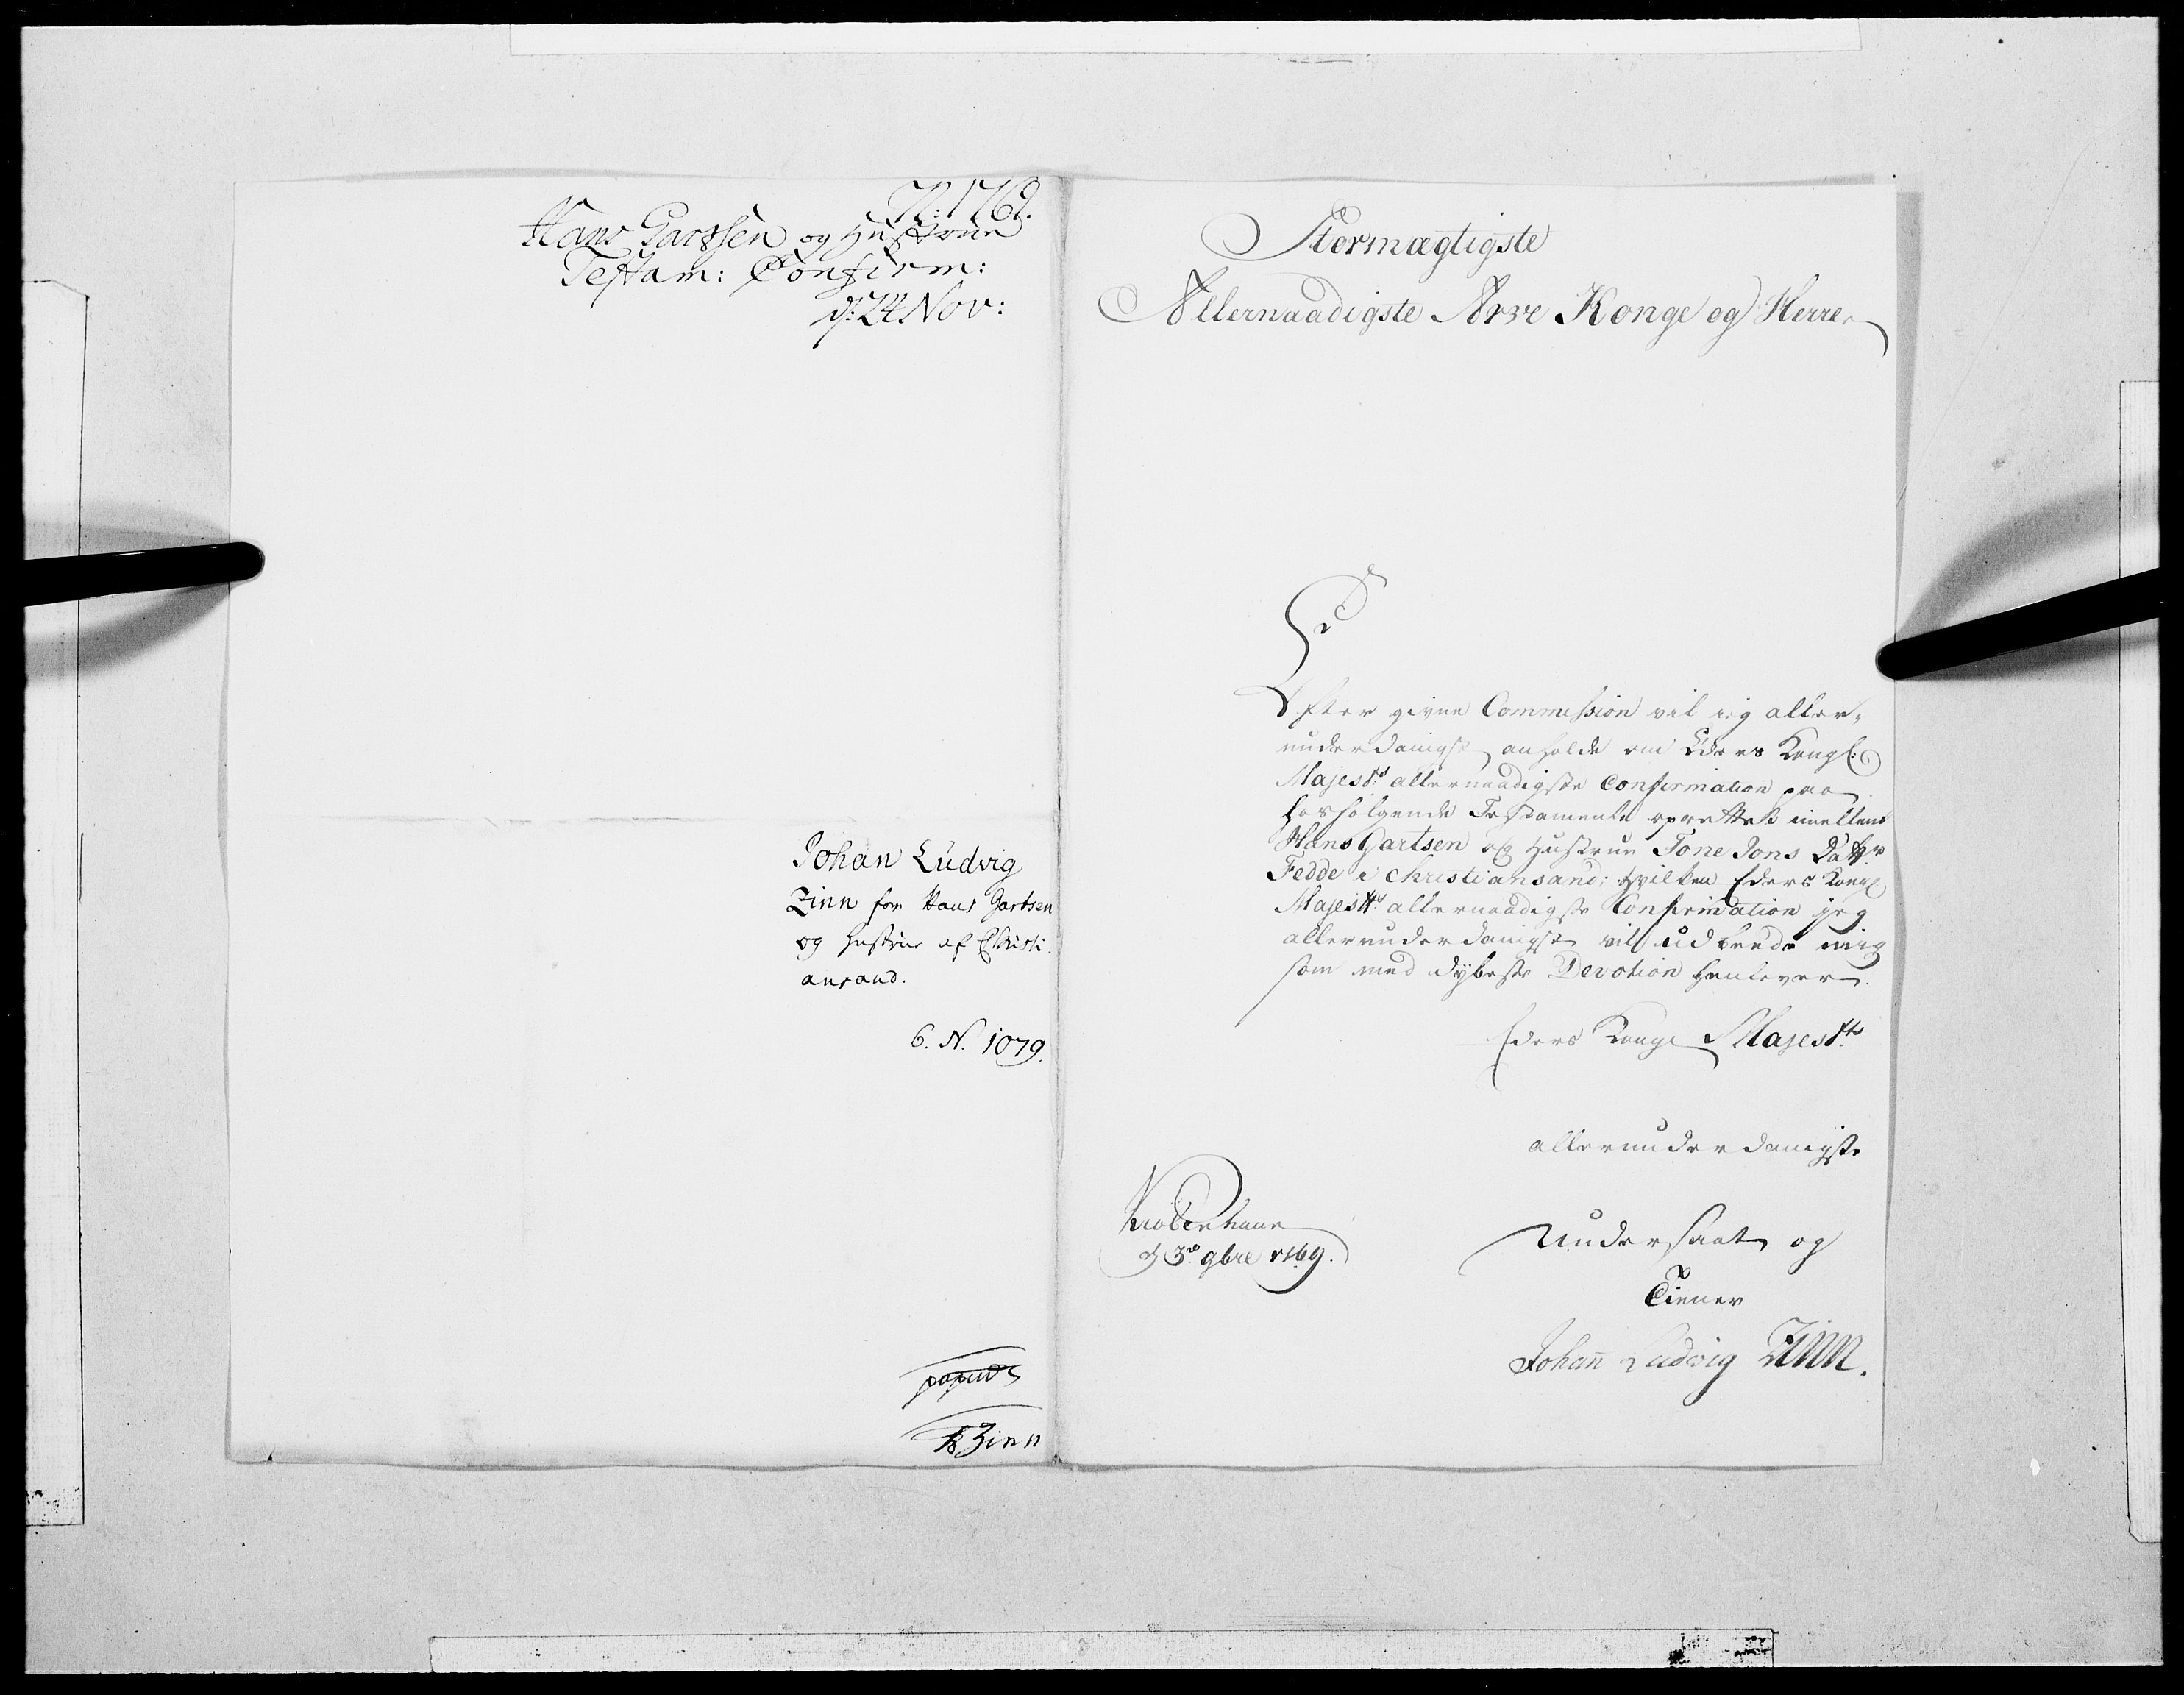 N: 1769.
Hans Gartsen og Hustrue
Testam: Confirm:
d: 24 Nov:
Johan Ludvig
Zinn for Hans Gartsen
og Hustrue af Christi-
ansand.
6. N. 1079.
Zinn
Stormægtigste
Allernaadigste Arve Konge og Herre
Efter given Commission vil ieg aller-
underdanigst anholde om Eders Kongl:
Majestts allernaadigste Confirmation paa
hosfølgende Testamente oprettet imellem
Hans Gartsen og Hustrue Tone Jons Dattr
Fedde i Christiansand; hvilken Eders Kongl
Majestts allernaadigste Confirmation jeg
allerunderdanigst vil udbede mig
som med dybeste Devotion henlever
Eders Kongl Majestts
allerunderdanigste
Kiøbenhavn
d 3 9bre 1769.
Undersaat og
Tiener
Johan Ludvig Zinn.